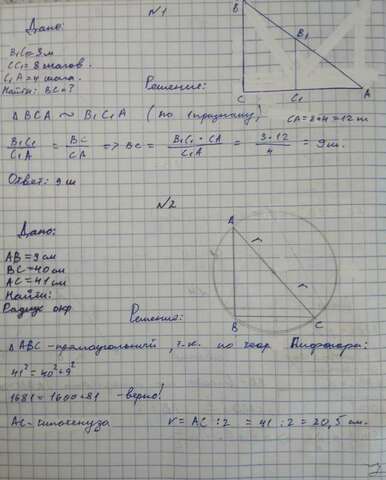 №1
Дано:
B₁C₁=3м
CC₁=8 шагов.
C₁A=4 шага.
Найти: BC=?
B
B₁
C
C₁
A
Решение:
△ BCA ~ B₁C₁A (по 1 признаку)
CA=8+4=12 ш
B₁C₁/C₁A = BC/CA => BC = B₁C₁·CA/C₁A = 3·12/4 = 9м.
Ответ: 9 ш
№2
Дано:
AB=9 см
BC=40 см
AC=41 см
Найти:
Радиус окр.
A
B
C
Решение:
△ABC - прямоугольный, т.к. по теор Пифагора:
41²=40²+9²
1681=1600+81 - верно!
AC - гипотенуза
r=AC:2 =41:2=20,5 см.